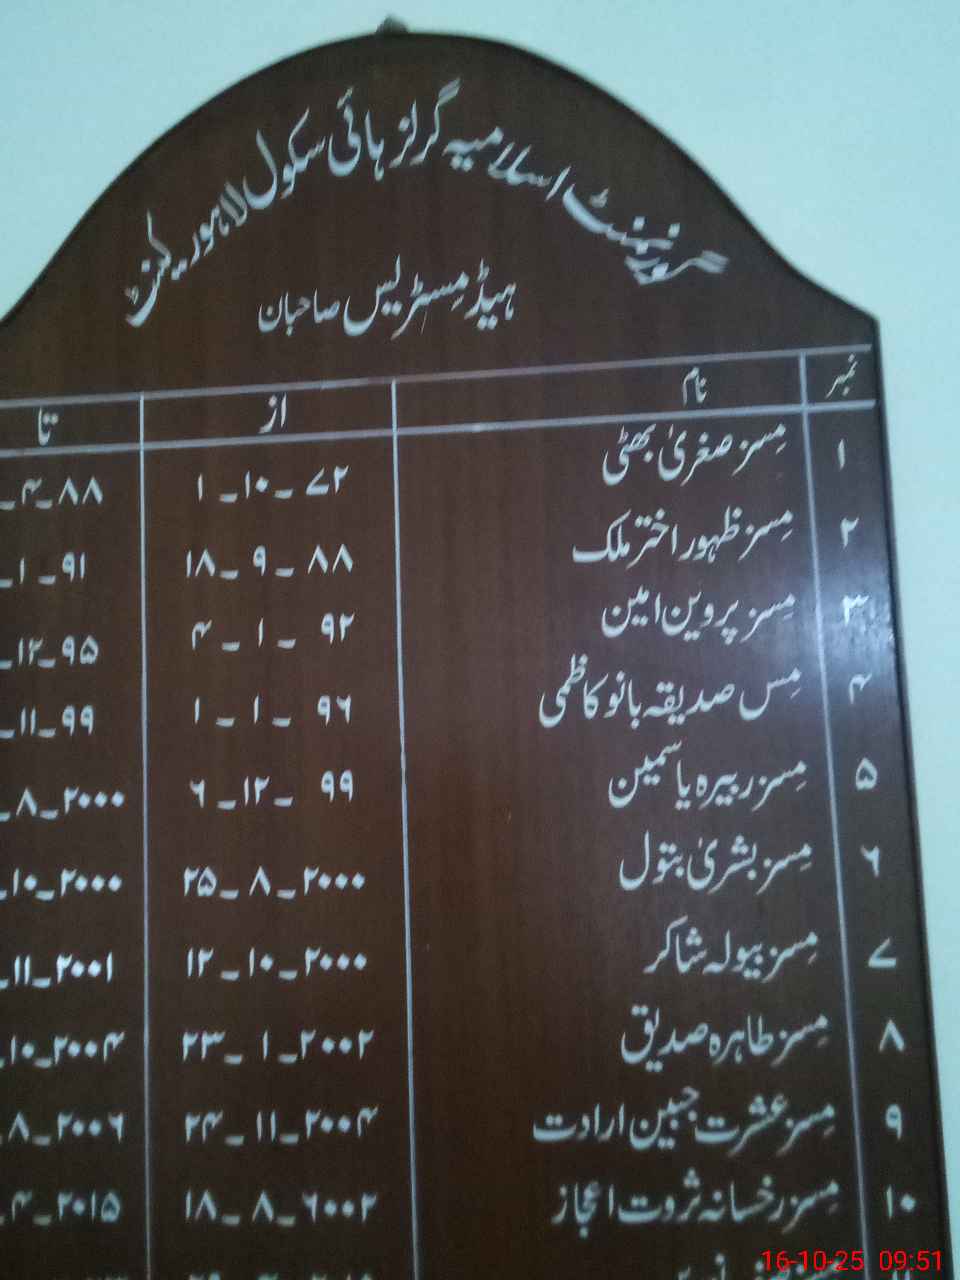 گورنمنٹ اسلامیہ گرلز ہائی سکول لاہور کینٹ
ہیڈ مسٹریس صاحبان
نمبر نام از تا
۱ مسز صغریٰ بھٹی ۱-۱۰-۷۲ ۴-۸۸
۲ مسز ظہور اختر ملک ۱۸-۹-۸۸ ۱-۹۱
۳ مسز پروین امین ۴-۱-۹۲ ۱۲-۹۵
۴ مس صدیقہ بانو کاظمی ۱-۱-۹۶ ۱۱-۹۹
۵ مسز ربیرہ یاسمین ۶-۱۲-۹۹ ۸-۲۰۰۰
۶ مسز بشریٰ بتول ۲۵-۸-۲۰۰۰ ۱۰-۲۰۰۰
۷ مسز بیولہ شاکر ۱۲-۱۰-۲۰۰۰ ۱۱-۲۰۰۱
۸ مسز طاہرہ صدیق ۲۳-۱-۲۰۰۲ ۱۰-۲۰۰۴
۹ مسز عشرت جبین ارادت ۲۴-۱۱-۲۰۰۴ ۸-۲۰۰۶
۱۰ مسز رخسانہ ثروت اعجاز ۱۸-۸-۶۰۰۲ ۴-۲۰۱۵
16-10-25 09:51